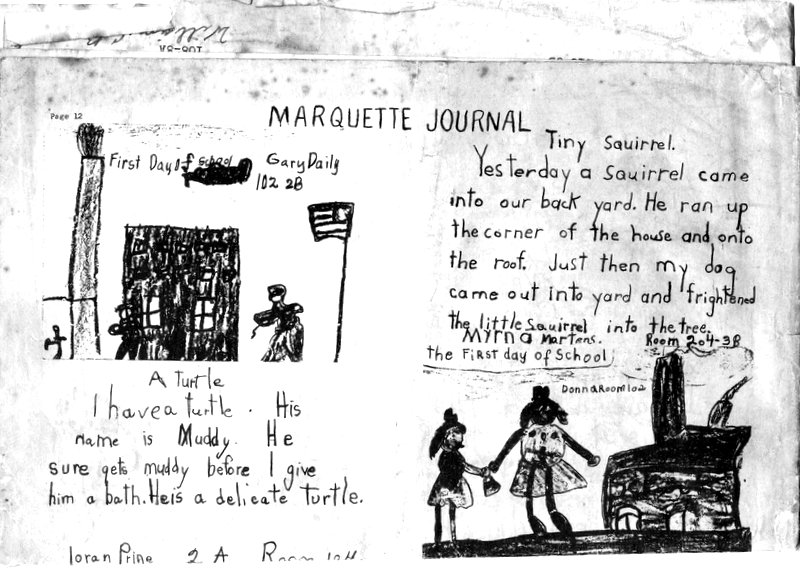 Page 12
MARQUETTE JOURNAL
First Day of School
Gary Daily
102 2B
A Turtle
I have a turtle. His
name is Muddy. He
sure gets muddy before I give
him a bath. He is a delicate turtle.
loran Prine 2 A Room
Tiny Squirrel.
Yesterday a Squirrel came
into our back yard. He ran up
the corner of the house and onto
the roof. Just then my dog
came out into yard and frightened
the little squirrel into the tree.
Myrna Martens. Room 204-3B
the First day of School
Donna Room 102